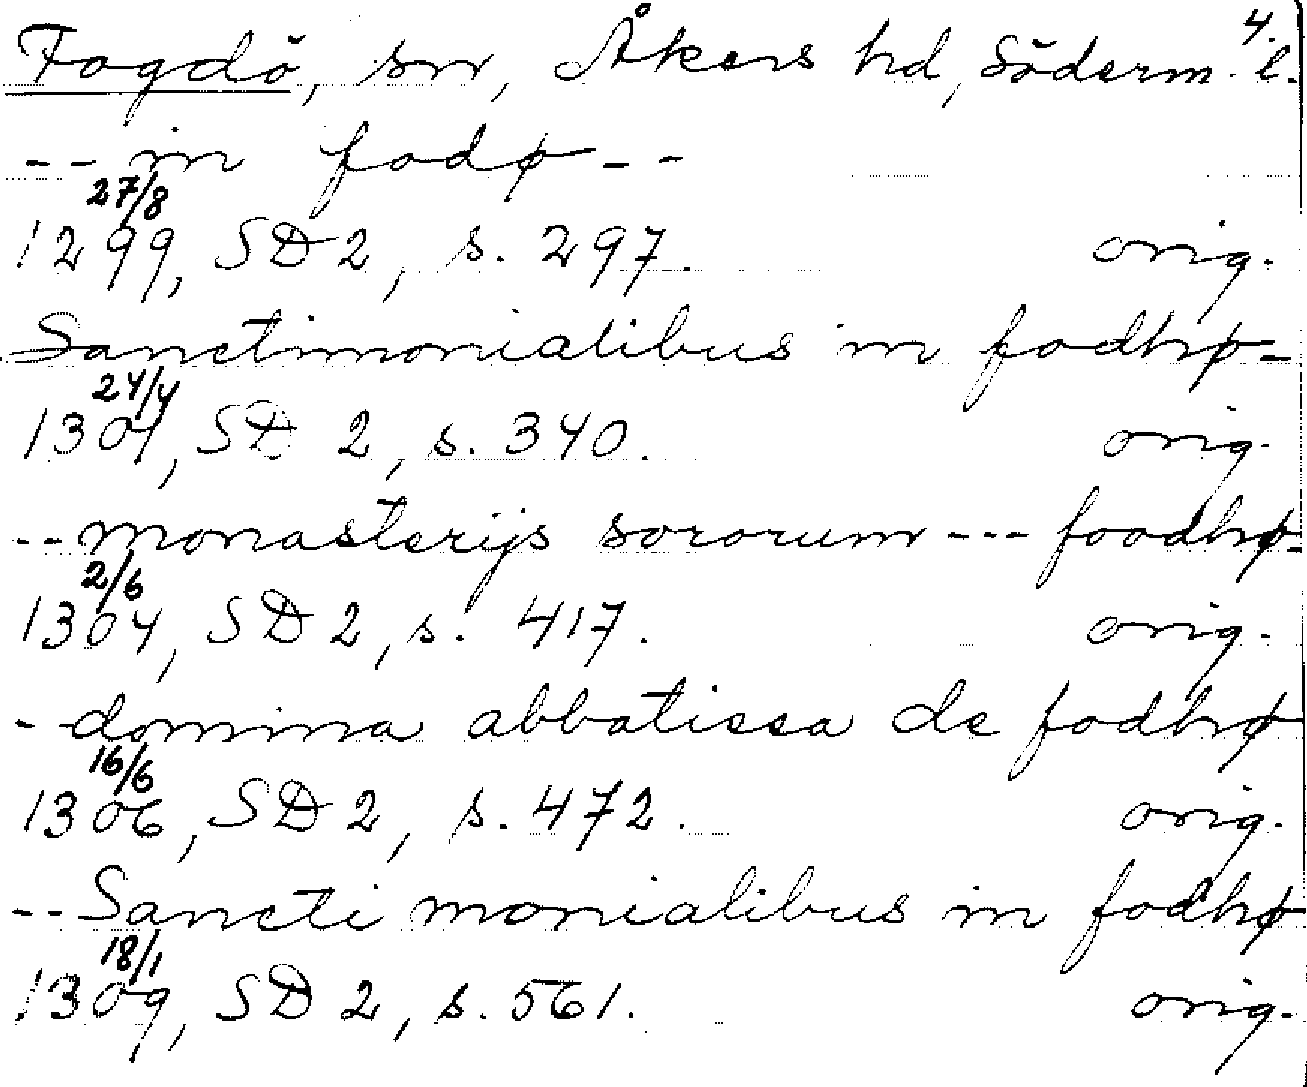 4.
Fogdö, sn, Åkers hd, Söderm. l.
-- in fodø --
27/8
1299, SD 2, s. 297. orig.
Sanctimonialibus in fodhø-
24/4
1301, SD 2, s. 340. orig.
-- monasterijs sororum --- foodhø-
2/6
1304, SD 2, s. 417. orig.
- domina abbatissa de fodhø
16/6
1306, SD 2, s. 472. orig.
-- Sancti monialibus in fodhø
18/1
1309, SD 2, s. 561. orig.